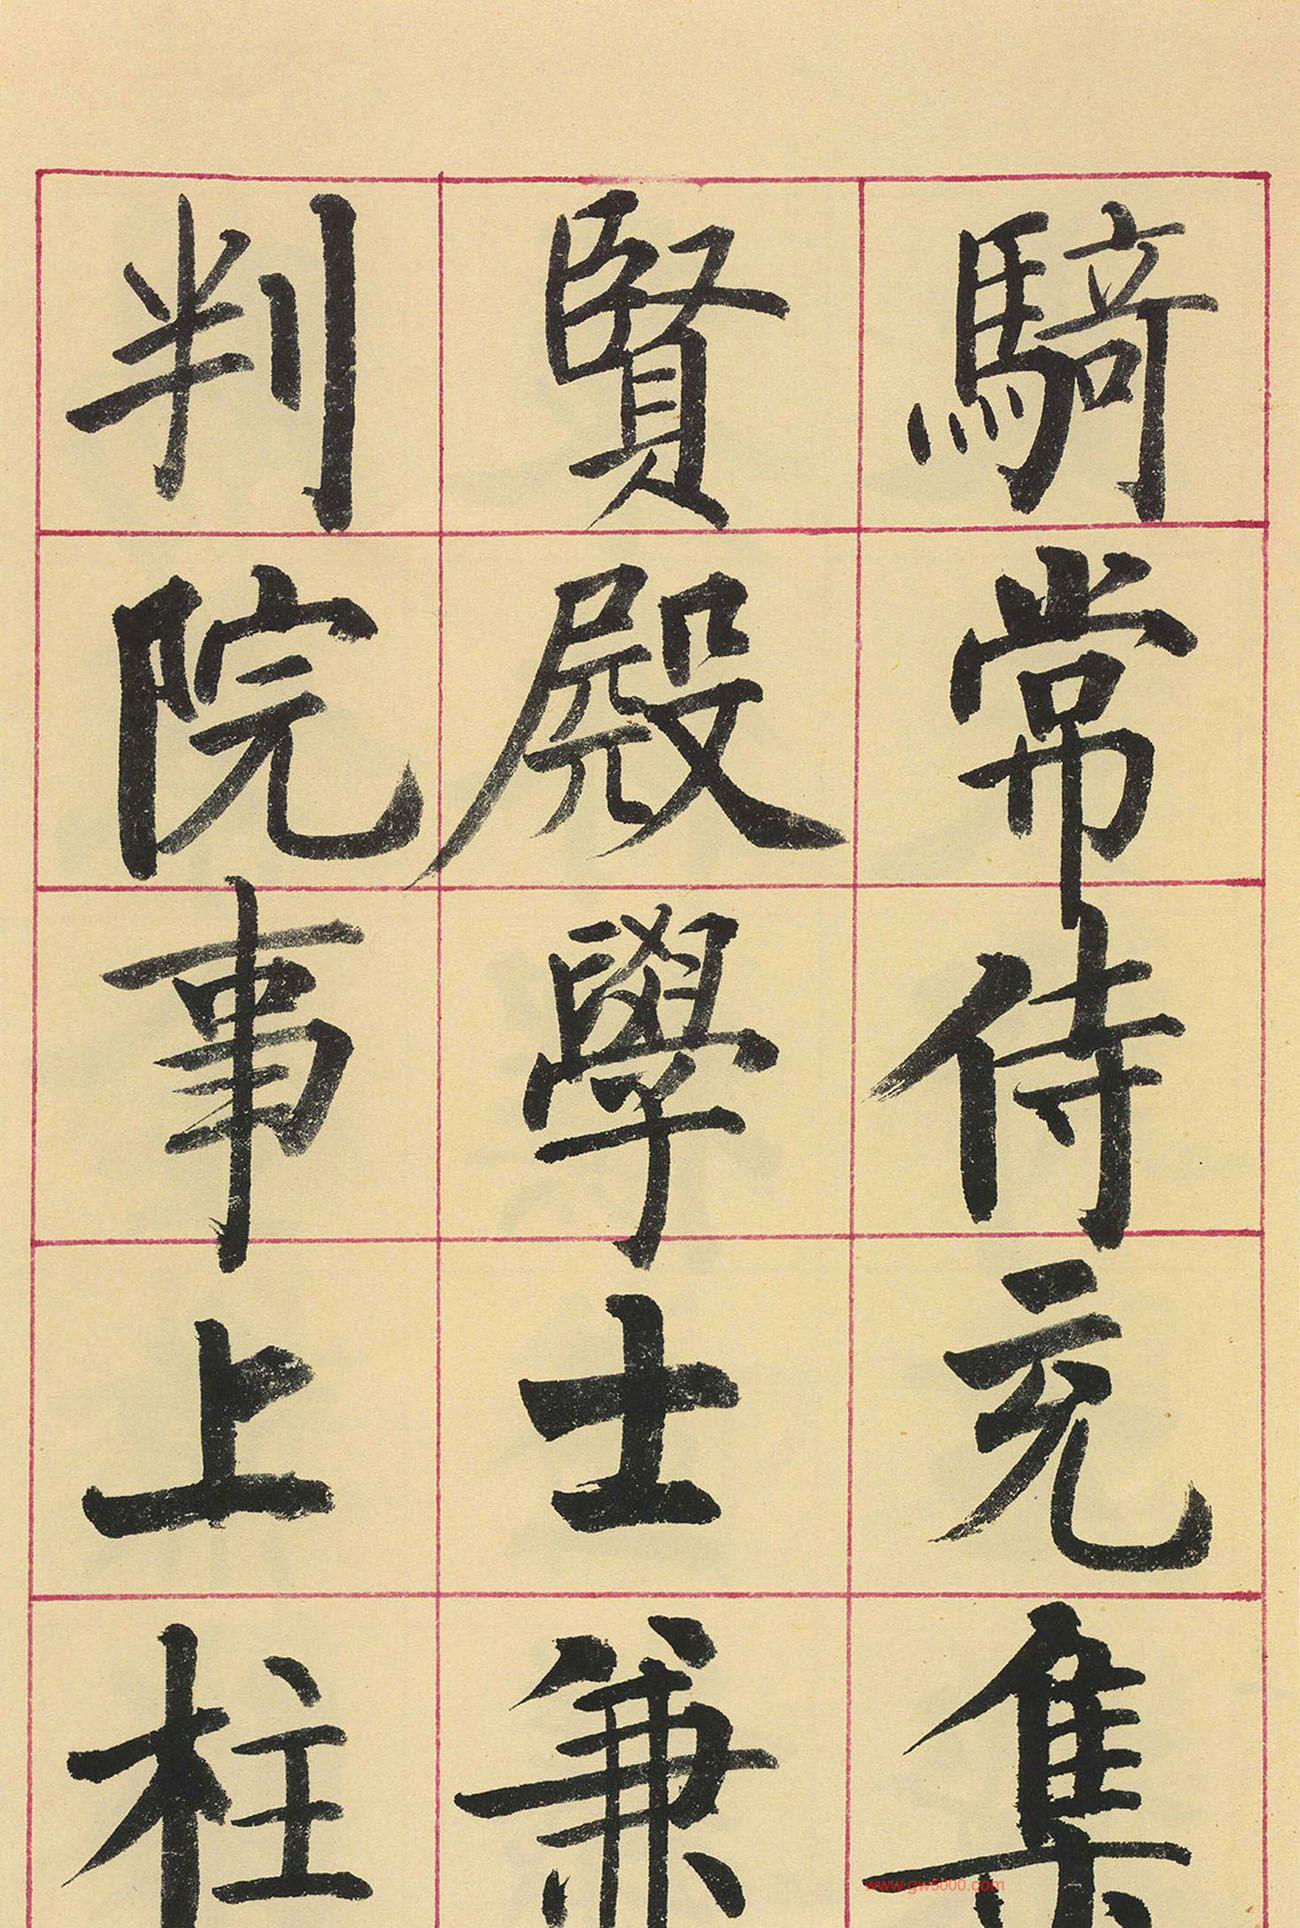 騎常侍充集
賢殿學士兼
判院事上柱
www.gw5000.com